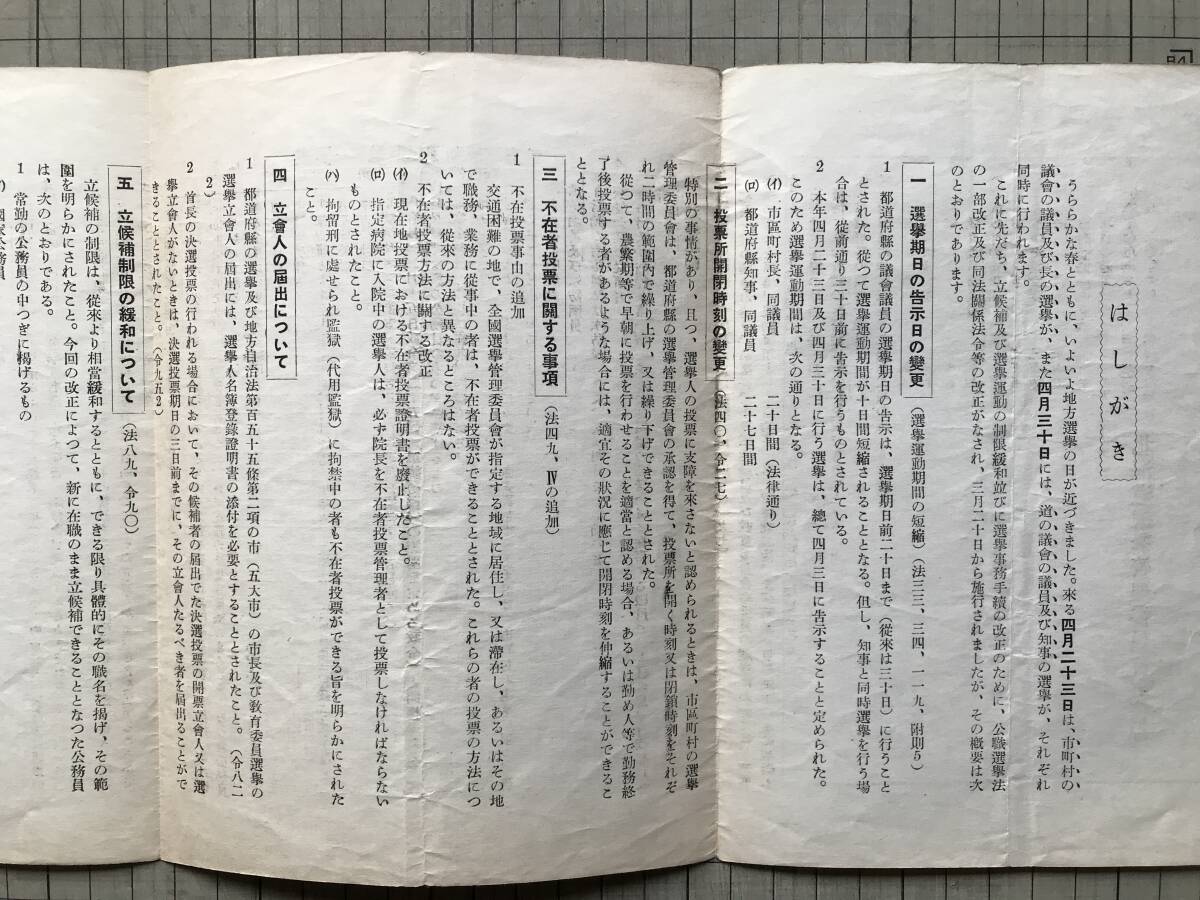 はしがき
うららかな春とともに、いよいよ地方選擧の日が近づきました。來る四月二十三日は、市町村の
議會の議員及び長の選擧が、また四月三十日には、道の議會の議員及び知事の選擧が、それぞれ
同時に行われます。
これに先だち、立候補及び選擧運動の制限緩和並びに選擧事務手續の改正のために、公職選擧法
の一部改正及び同法關係法令等の改正がなされ、三月二十日から施行されましたが、その槪要は次
のとおりであります。
一 選擧期日の告示日の變更(選擧運動期間の短縮)(法三三、三四、一一九、附則5)
1 都道府縣の議會議員の選擧期日の告示は、選擧期日前二十日まで(從來は三十日)に行うこと
とされた。從つて選擧運動期間が十日間短縮されることとなる。但し、知事と同時選擧を行う場
合は、從前通り三十日前に告示を行うものとされている。
2 本年四月二十三日及び四月三十日に行う選擧は、總て四月三日に告示することと定められた。
このため選擧運動期間は、次の通りとなる。
(イ) 市區町村長、同議員 二十日間(法律通り)
(ロ) 都道府縣知事、同議員 二十七日間
二 投票所開閉時刻の變更(法四〇、令二七)
特別の事情があり、且つ、選擧人の投票に支障を來さないと認められるときは、市區町村の選擧
管理委員會は、都道府縣の選擧管理委員會の承認を得て、投票所を開く時刻又は閉鎖時刻をそれぞ
れ二時間の範圍内で繰り上げ、又は繰り下げできることとされた。
從つて、農繁期等で早朝に投票を行わせることを適當と認める場合、あるいは勤め人等で勤務終
了後投票する者があるような場合には、適宜その狀況に應じて開閉時刻を伸縮することができるこ
ととなる。
三 不在者投票に關する事項(法四九、Ⅳの追加)
1 不在投票事由の追加
交通困難の地で、全國選擧管理委員會が指定する地域に居住し、又は滯在し、あるいはその地
で職務、業務に從事中の者は、不在者投票ができることとされた。これらの者の投票の方法につ
いては、從來の方法と異なるところはない。
2 不在者投票の方法に關する改正
(イ) 現在地投票における不在者投票證明書を廢止したこと。
(ロ) 指定病院に入院中の選擧人は、必ず院長を不在者投票管理者として投票しなければならない
ものとされたこと。
(ハ) 拘留刑に處せられ監獄(代用監獄)に拘禁中の者も不在者投票ができる旨を明らかにされた
こと。
四 立會人の屆出について
1 都道府縣の選擧及び地方自治法第百五十五條第二項の市(五大市)の市長及び敎育委員選擧の
選擧立會人の屆出には、選擧人名簿登錄證明書の添付を必要とすることとされたこと。(令八二
2)
2 首長の決選投票の行われる場合において、その候補者の屆出でた決選投票の開票立會人又は選
擧立會人がないときは、決選投票期日の三日前までに、その立會人たるべき者を屆出ることがで
きることとされたこと。(令九五2)
五 立候補制限の緩和について(法八九、令九〇)
立候補の制限は、從來より相當緩和するとともに、できる限り具體的にその職名を揭げ、その範
圍を明らかにされたこと。今回の改正によつて、新に在職のまま立候補できることとなつた公務員
は、次のとおりである。
1 常勤の公務員の中つぎに揭げるもの